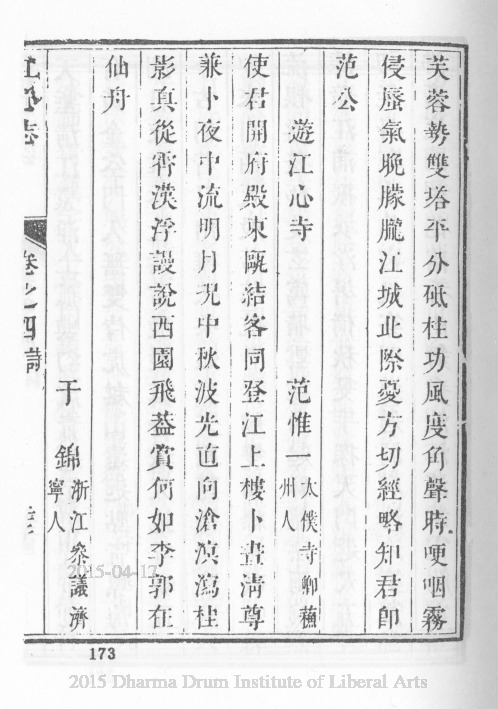 芙蓉勢雙塔平分砥柱功風度角聲時哽咽霧
侵蜃氣晚朦朧江城此際憂方切經略知君卽
范公
遊江心寺 范惟一 太僕寺卿蘓州人
使君開府殿東甌結客同登江上樓卜晝淸尊
兼卜夜中流明月況中秋波光直向滄溟瀉桂
影真從霄漢浮謾說西園飛葢賞何如李郭在
仙舟
于錦 浙江叅議濟寧人
志
卷之四詩
173
2015-04-17
2015 Dharma Drum Institute of Liberal Arts